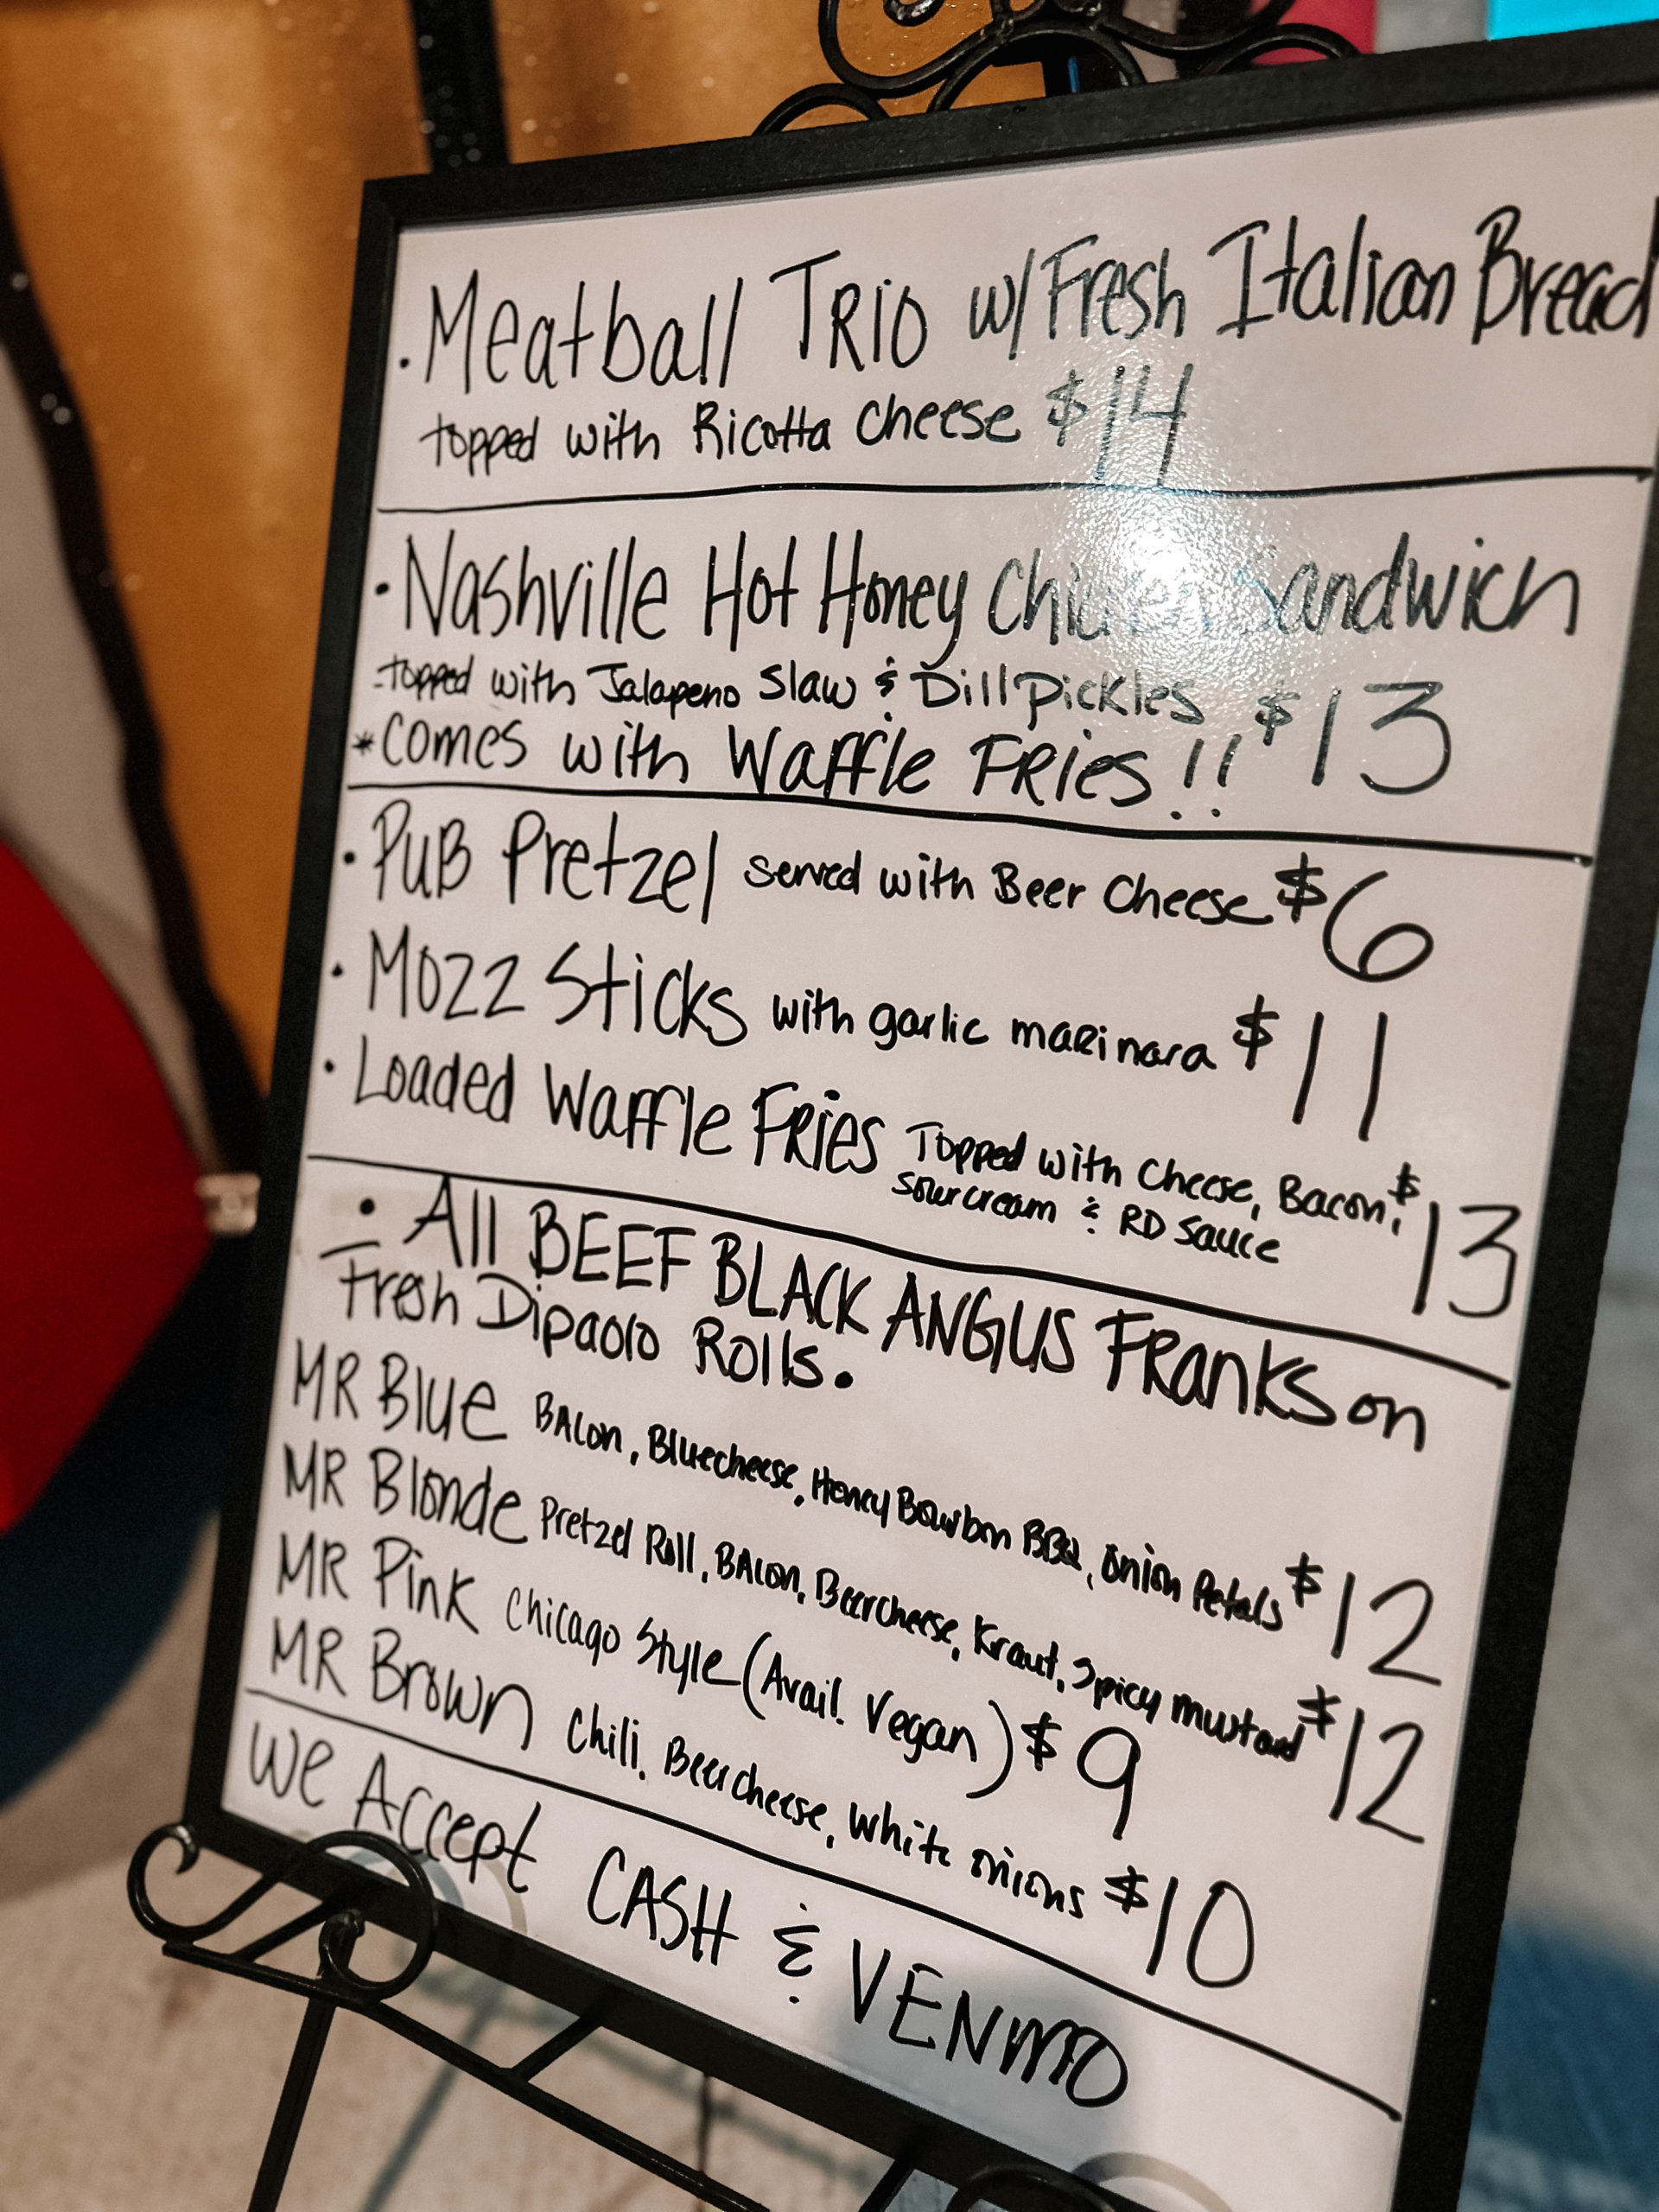 • Meatball TRIO w/ Fresh Italian Bread
topped with Ricotta Cheese $14
• Nashville Hot Honey Chicken Sandwich
-Topped with Jalapeno Slaw & Dill Pickles $13
*comes with Waffle FRies!!
• PuB Pretzel served with Beer Cheese $6
• Mozz Sticks with garlic maRinara $11
• Loaded Waffle FRies Topped with Cheese, Bacon, $13
sour cream & RD Sauce
• All BEEF BLACK ANGUS FRanks on
Fresh Dipaolo Rolls.
MR Blue BAcon, Bluecheese, Honey Bourbon BBQ, Onion Petals $12
MR Blonde Pretzel Roll, BAcon, Beercheese, Kraut, Spicy mustard $12
MR Pink Chicago Style (Avail. Vegan) $9
MR Brown Chili, Beercheese, white onions $10
We Accept CASH & VENMO